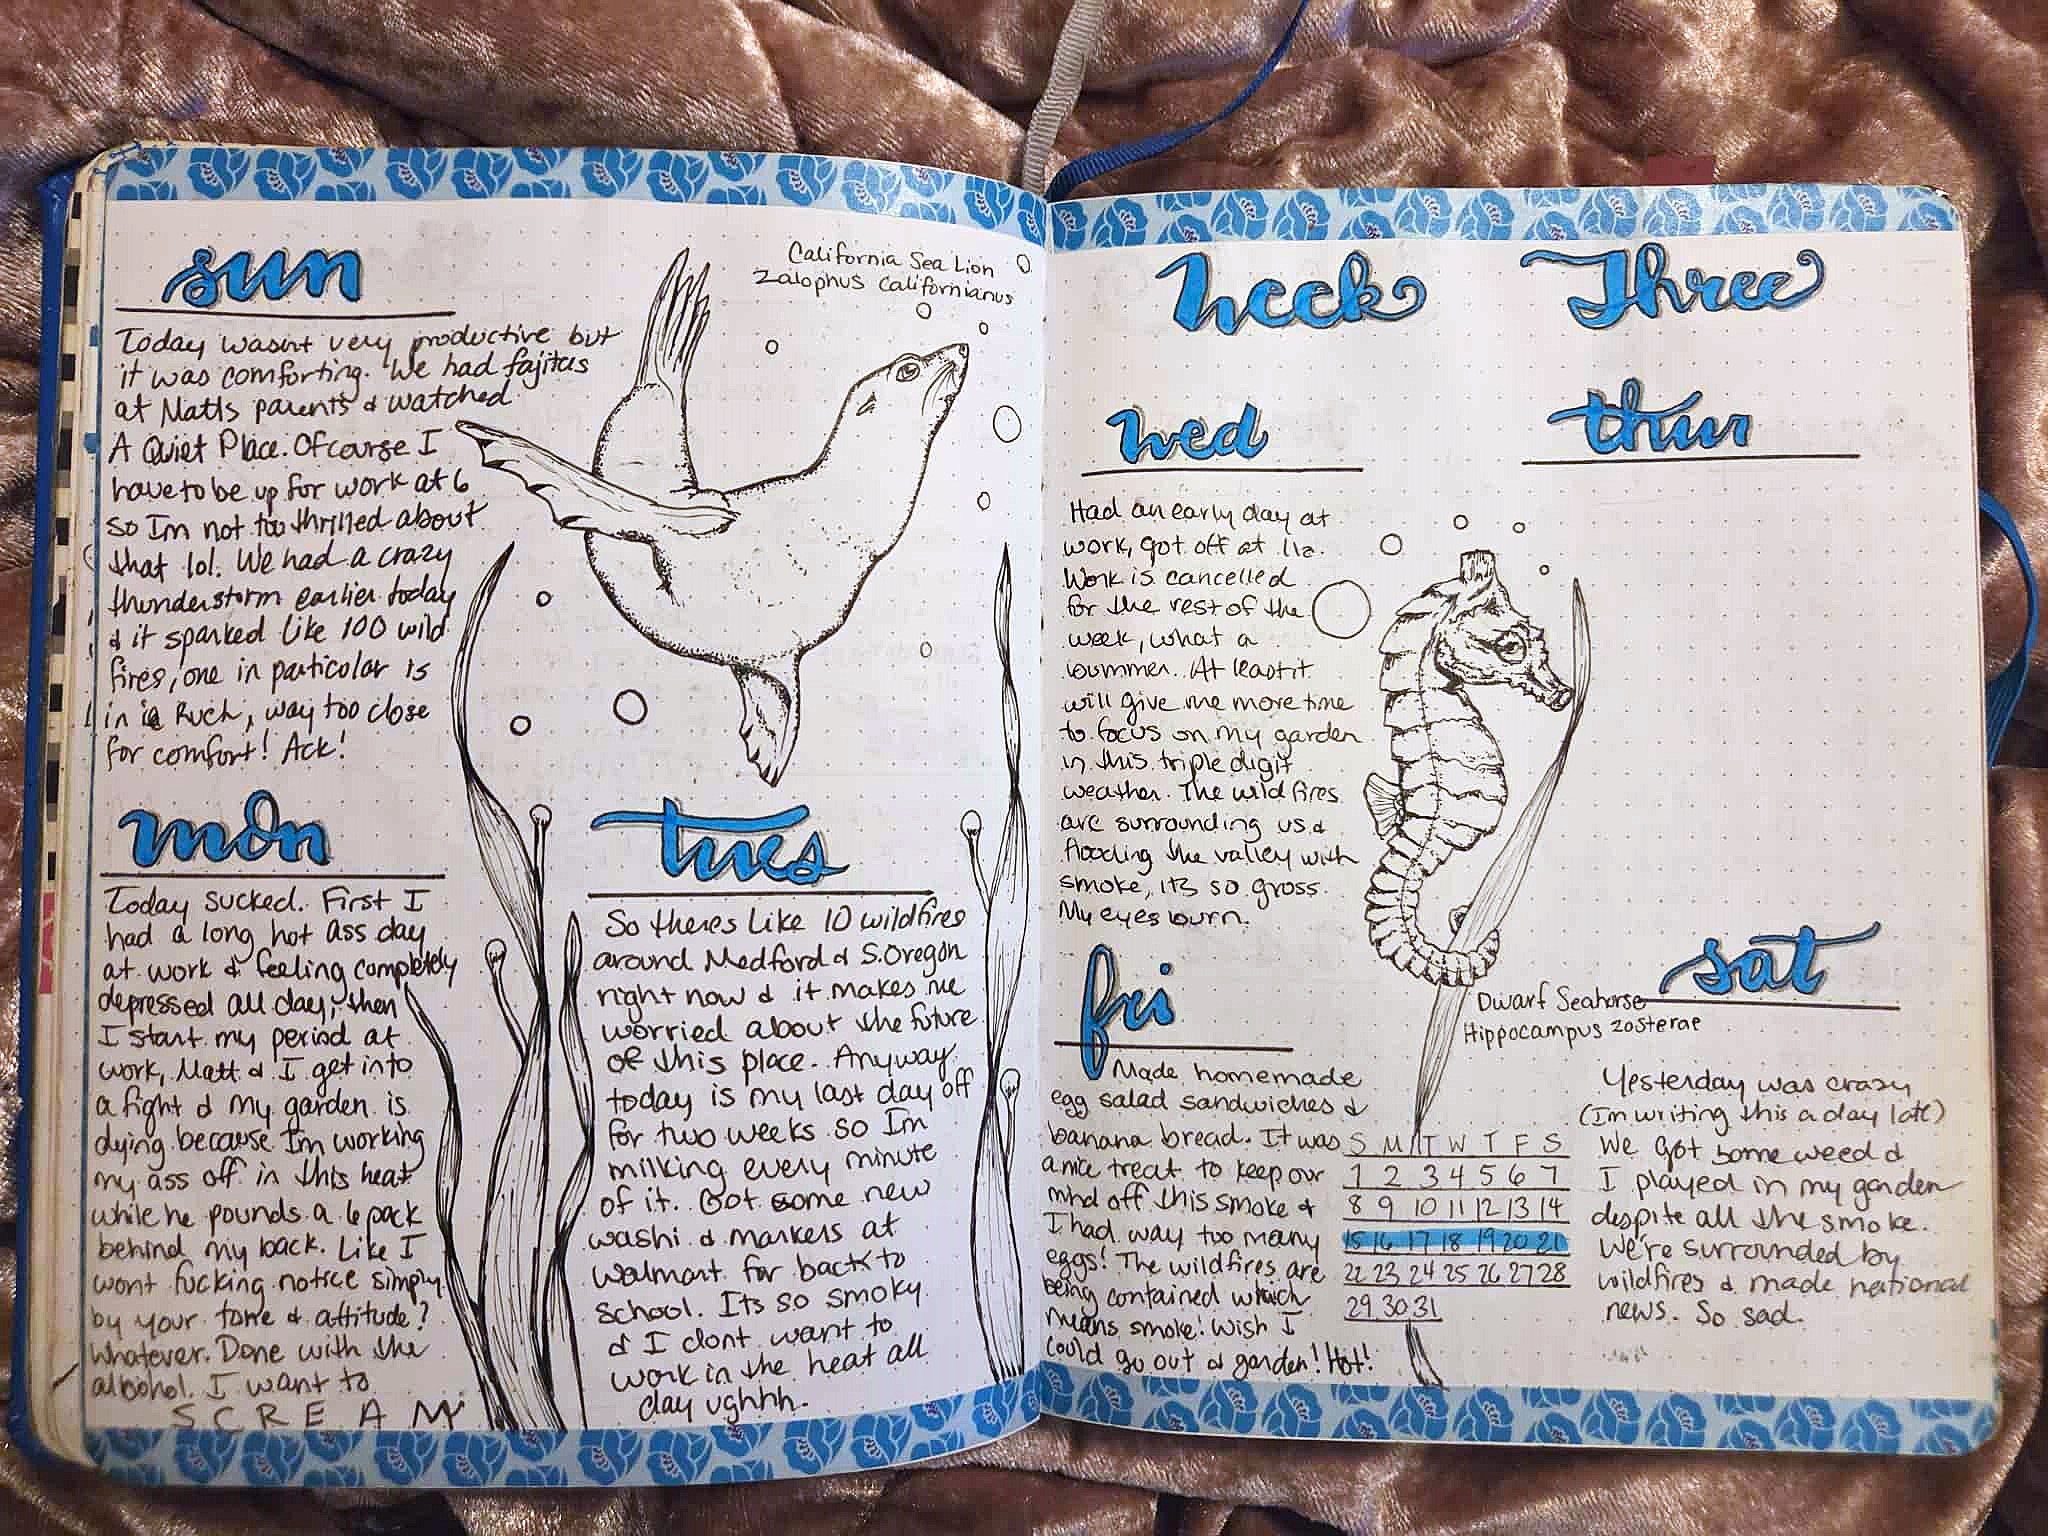 sun
Today wasnt very productive but
it was comforting. We had fajitas
at Matts parents & watched
A Quiet Place. Of course I
have to be up for work at 6
so Im not too thrilled about
that lol. We had a crazy
thunderstorm earlier today
& it sparked like 100 wild
fires, one in particular is
in Ruch, way too close
for comfort! Ack!
California Sea Lion
Zalophus Californianus
mon
Today sucked. First I
had a long hot ass day
at work & feeling completely
depressed all day, then
I start my period at
work, Matt & I get into
a fight & my garden is
dying because Im working
my ass off in this heat
while he pounds a 6 pack
behind my back. Like I
wont fucking notice simply
by your tone & attitude?
Whatever. Done with the
alcohol. I want to
SCREAM
tues
So theres like 10 wildfires
around Medford & S. Oregon
right now & it makes me
worried about the future
of this place. Anyway
today is my last day off
for two weeks so Im
milking every minute
of it. Got some new
washi & markers at
Walmart for back to
school. Its so smoky
& I dont want to
work in the heat all
day ughhh.
Week Three
wed
Had an early day at
work, got off at
Work is cancelled
for the rest of the
week, what a
bummer. At least it
will give me more time
to focus on my garden
in this triple digit
weather. The wildfires
are surrounding us &
flooding the valley with
smoke, its so gross.
My eyes burn.
thur
Dwarf Seahorse
Hippocampus zosterae
fri
Made homemade
egg salad sandwiches &
banana bread. It was
a nice treat to keep our
mind off this smoke &
I had way too many
eggs! The wildfires are
being contained which
means smoke! Wish I
could go out & garden! Hot!
S M T W T F S
1 2 3 4 5 6 7
8 9 10 11 12 13 14
15 16 17 18 19 20 21
22 23 24 25 26 27 28
29 30 31
sat
Yesterday was crazy
(Im writing this a day late)
We got some weed &
I played in my garden
despite all the smoke.
We're surrounded by
wildfires & made national
news. So sad.